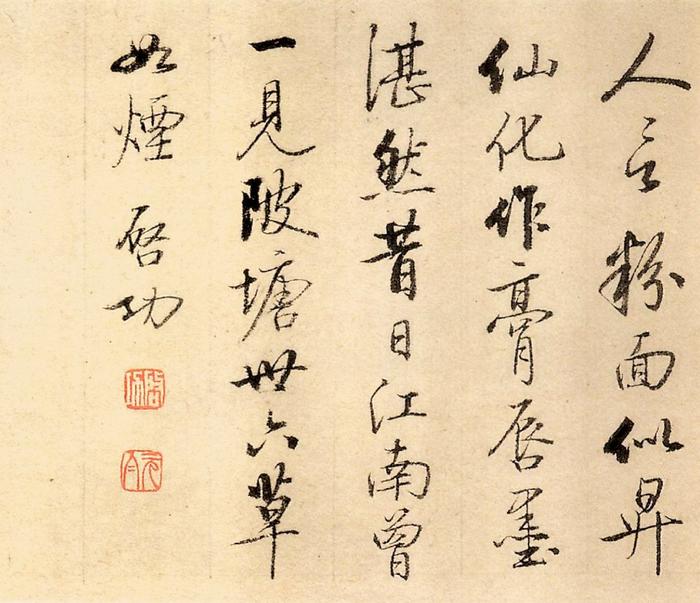 人言粉面似昇
仙化作膏唇墨
湛然昔日江南曾
一見陂塘卅六草
如煙 啓功
啓功
元白